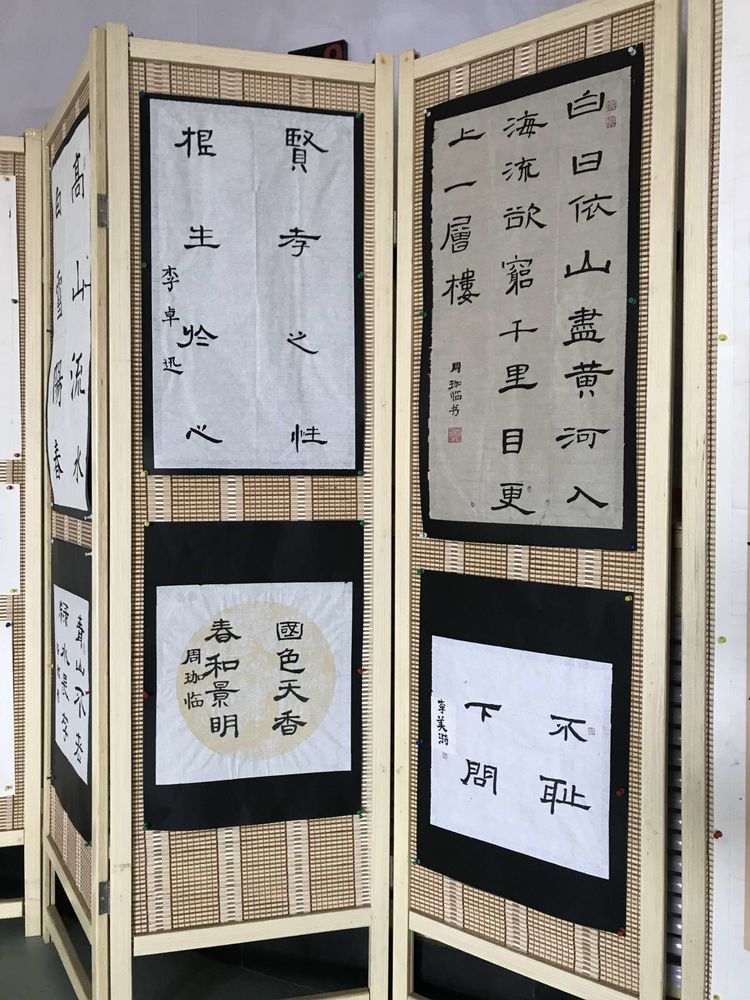 白日依山盡黃河入
海流欲窮千里目更
上一層樓
周珈临书
不耻
下問
賢孝之性
根生於心
李卓迅
國色天香
春和景明
周珈临
高山流水
白雪陽春
青山不老
緑水長存